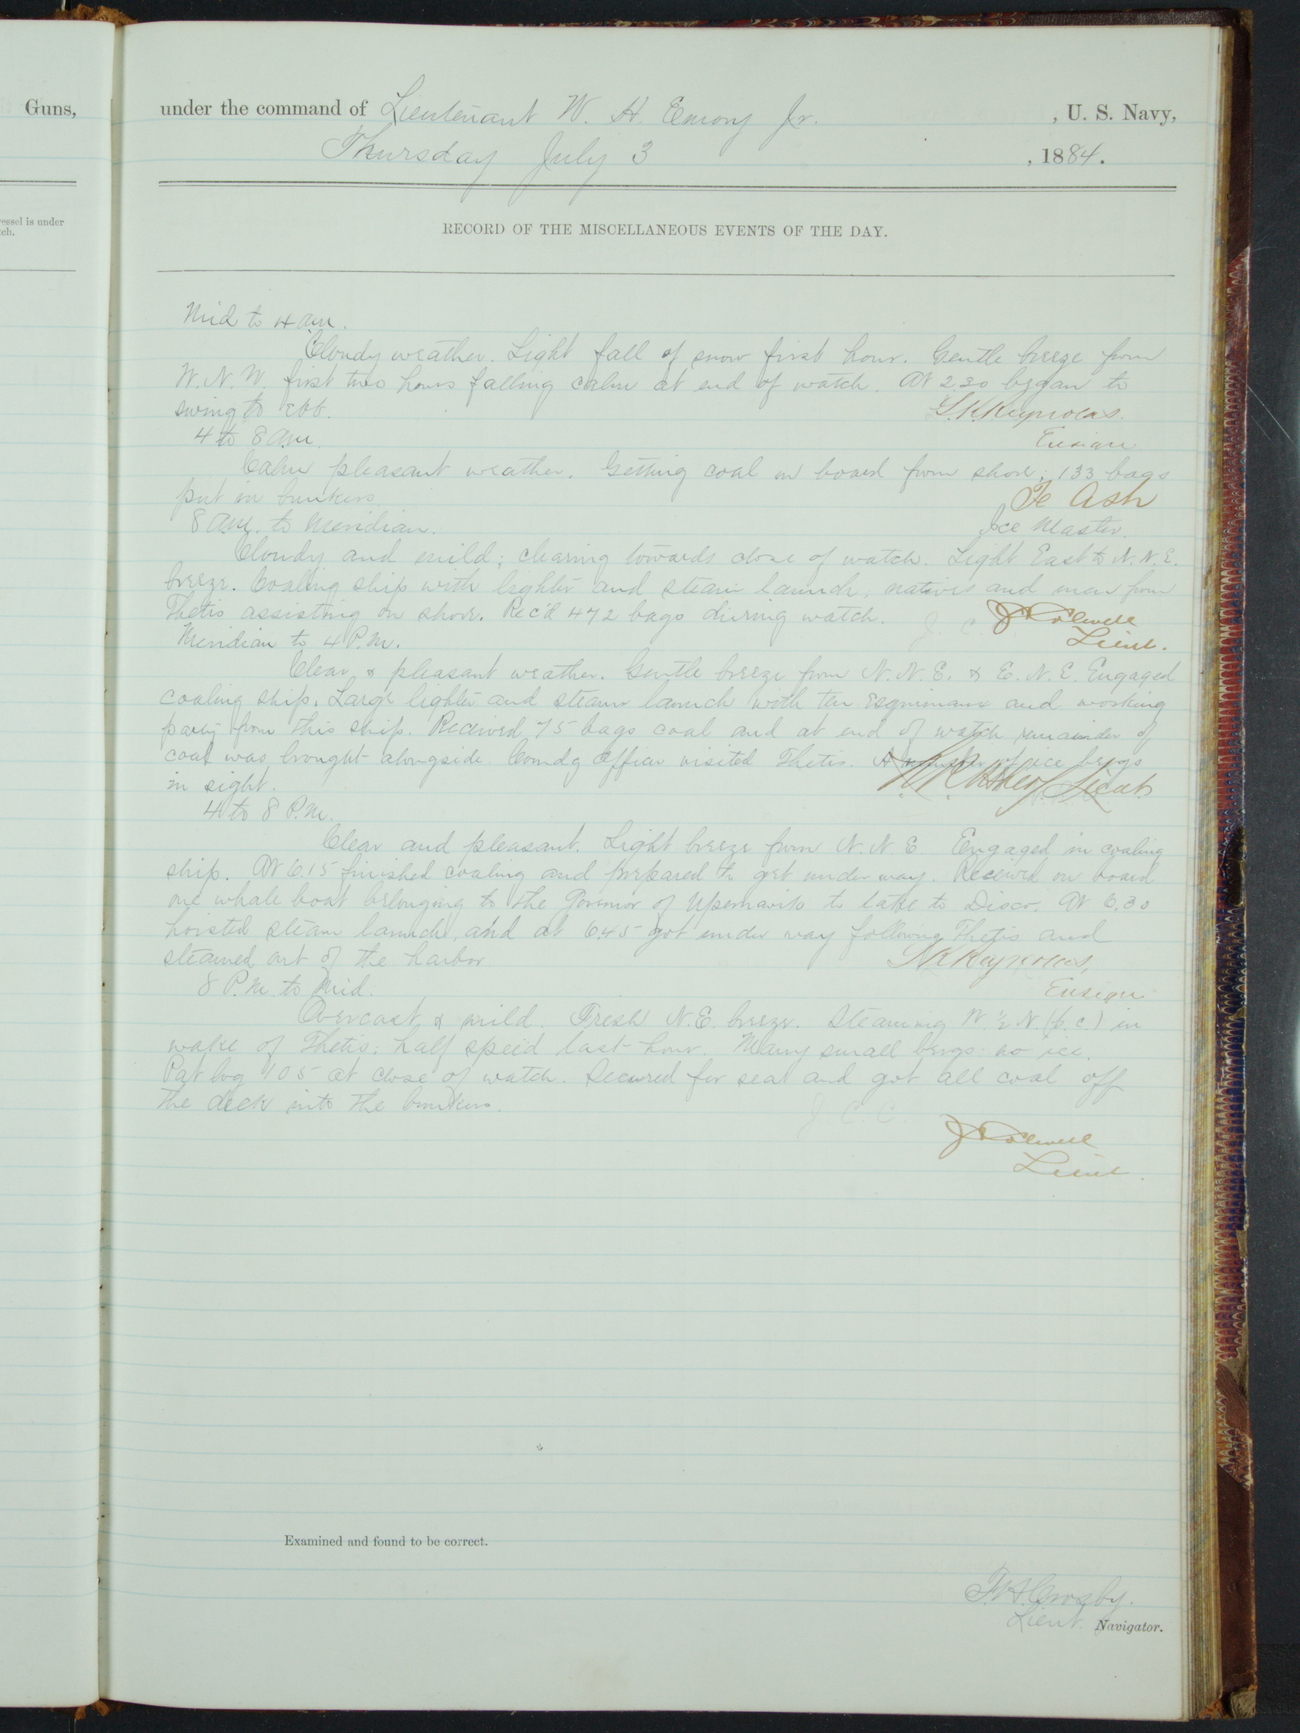 Guns,
under the command of Lieutenant W. H. Emory Jr. , U. S. Navy,
Thursday July 3 , 1884.
essel is under
tch.
RECORD OF THE MISCELLANEOUS EVENTS OF THE DAY.
Mid to 4 am.
Cloudy weather. Light fall of snow first hour. Gentle breeze from
W. N. W. first two hours falling calm at end of watch. At 2.30 began to
swing to ebb. L.K. Reynolds.
4 to 8 a.m. Ensign
Calm pleasant weather. Getting coal on board from shore; 133 bags
put in bunkers. Ash
8 a.m. to Meridian. Ice Master.
Cloudy and mild; clearing towards close of watch. Light East to N. N. E.
breeze. Coaling ship with lighter and steam launch, natives and men from
Thetis assisting on shore. Rec'd 472 bags during watch. J C Colwell
Meridian to 4 P.M. Lieut.
Clear & pleasant weather. Gentle breeze from N. N. E. & E. N. E. Engaged
coaling ship. Large lighter and steam launch with ten Esquimaux and working
party from this ship. Received 75 bags coal and at end of watch remainder of
coal was brought alongside. Comdg Officer visited Thetis. A number of ice bergs
in sight. Lieut
4 to 8 P.M.
Clear and pleasant. Light breeze from N. N. E Engaged in coaling
ship. At 6.15 finished coaling and prepared to get under way. Received on board
one whale boat belonging to the Govenor of Upernavik to take to Disco. At 6.30
hoisted steam launch, and at 6.45 got under way following Thetis and
steamed out of the harbor L.K. Reynolds,
8 P.M. to Mid. Ensign
Overcast & mild. Fresh N.E. breeze. Steaming W. & N. (p.c.) in
wake of Thetis; half speed last hour. Many small bergs: no ice.
Pat log 10.5 at close of watch. Secured for sea and got all coal off
the deck into the bunkers. J C C
J C Colwell
Lieut.
Examined and found to be correct.
Crosby.
Lieut. Navigator.